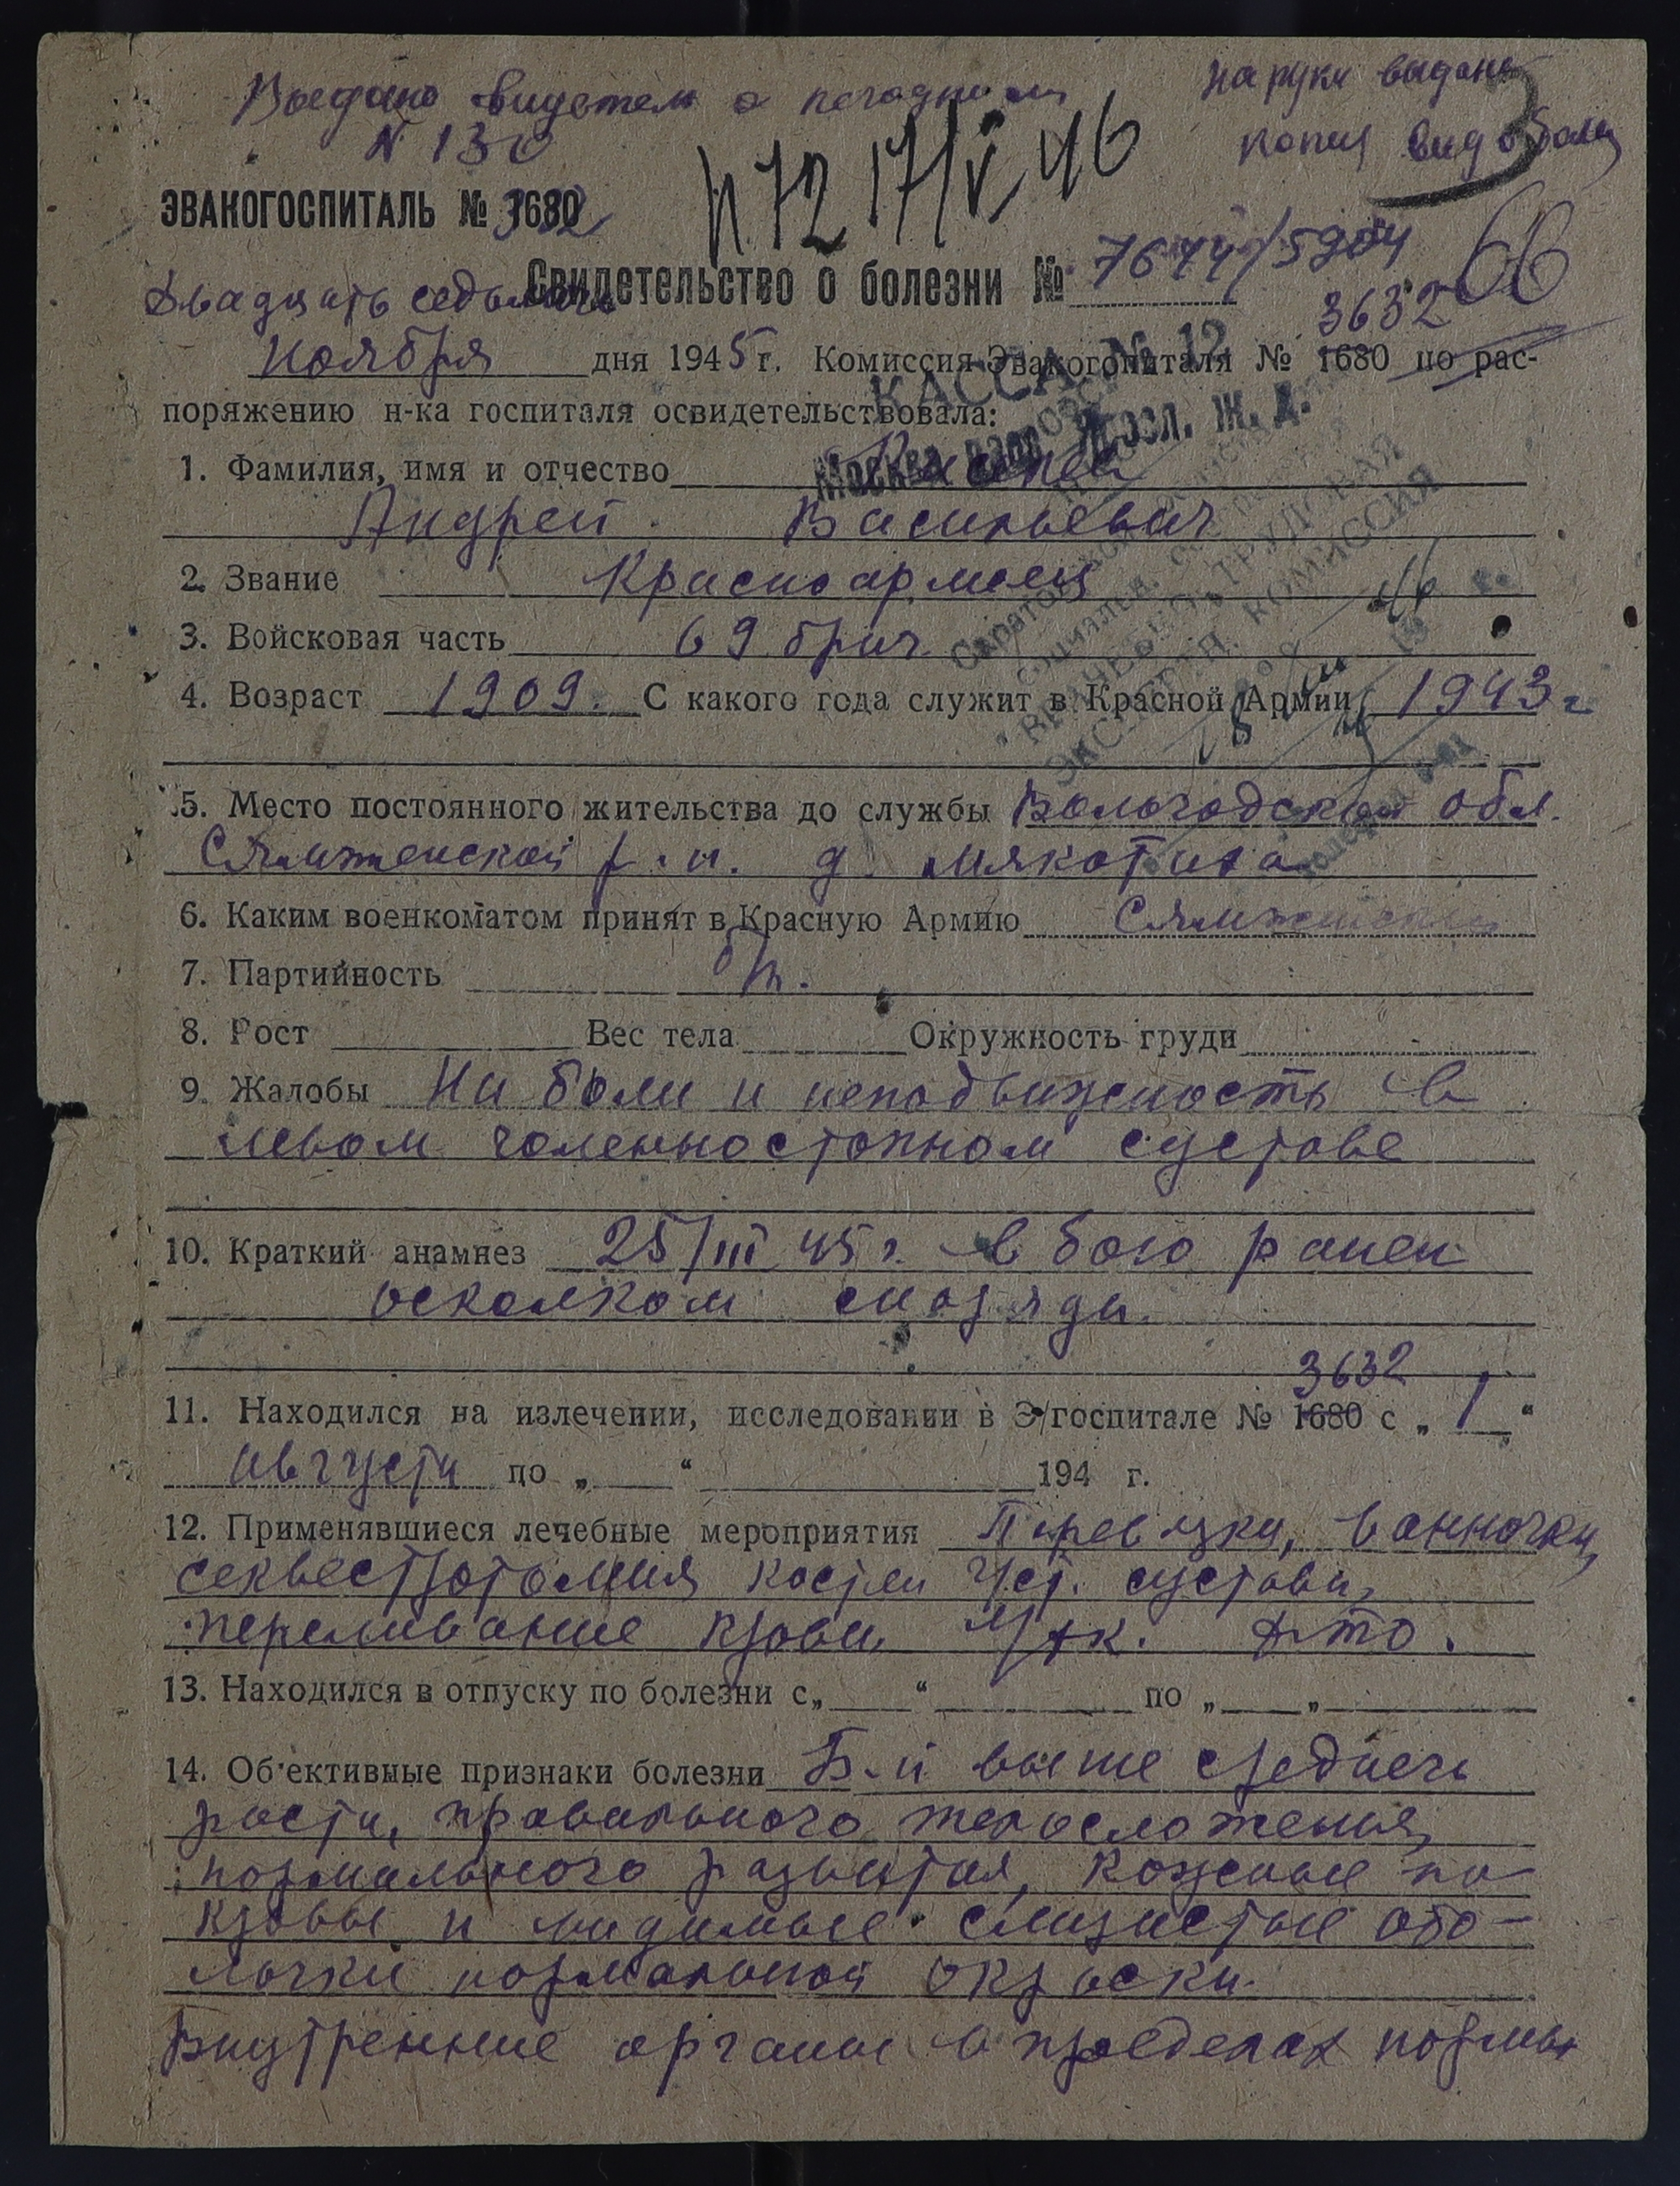 Выдано свидетел о негодности
№ 130
на руки выдана
копия свид о болез
N 72 17/V 46
ЭВАКОГОСПИТАЛЬ № 1680
3632
66
Свидетельство о болезни № 7674/5904
Двадцать седьмого
ноября дня 1945 г. Комиссия Эвакогопиталя № 1680 по рас-
3632
поряжению н-ка госпиталя освидетельствовала:
КАССА № 12
Москва Яросл. Ж. Д.
1. Фамилия, имя и отчество
Андрей Васильевич
2. Звание Красноармеец
3. Войсковая часть 69 бриг.
4. Возраст 1909. С какого года служит в Красной Армии 1943 г
ВРАЧЕБНО-ТРУДОВАЯ
ЭКСПЕРТН. КОМИССИЯ
5. Место постоянного жительства до службы Вологодской обл.
Сямженской р. н. д. Мякотиха
6. Каким военкоматом принят в Красную Армию Сямженским
7. Партийность б/п.
8. Рост Вес тела Окружность груди
9. Жалобы На боли и неподвижность в
левом голенностопном суставе
10. Краткий анамнез 25/III 45 г. в бою ранен
осколком снаряда.
3632
11. Находился на излечении, исследовании в Э/госпитале № 1680 с „ 1 “
августа по „ “ 194 г.
12. Применявшиеся лечебные мероприятия Перевязки, ванночки,
секвестротомия костей г/ст. сустава,
переливание крови, л/фк. ф-то.
13. Находился в отпуску по болезни с „ “ по „ „
14. Об'ективные признаки болезни Б-й выше среднего
роста, правильного телосложения,
нормального развития, кожные по
кровы и видимые слизистые обо-
лочки нормальной окраски.
Внутренние органы в пределах нормы